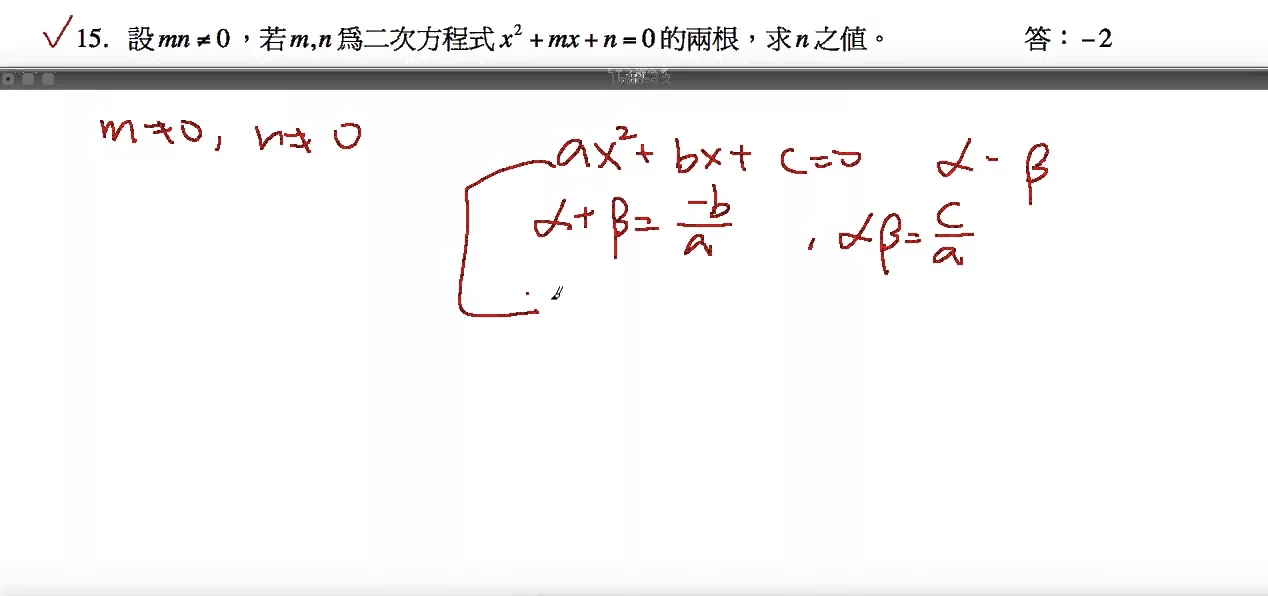 ✓ 15. 設 mn ≠ 0，若 m,n 爲二次方程式 x² + mx + n = 0 的兩根，求 n 之値。 答：−2
m ≠ 0, n ≠ 0
ax² + bx + c = 0 α - β
α + β = -b/a , αβ = c/a